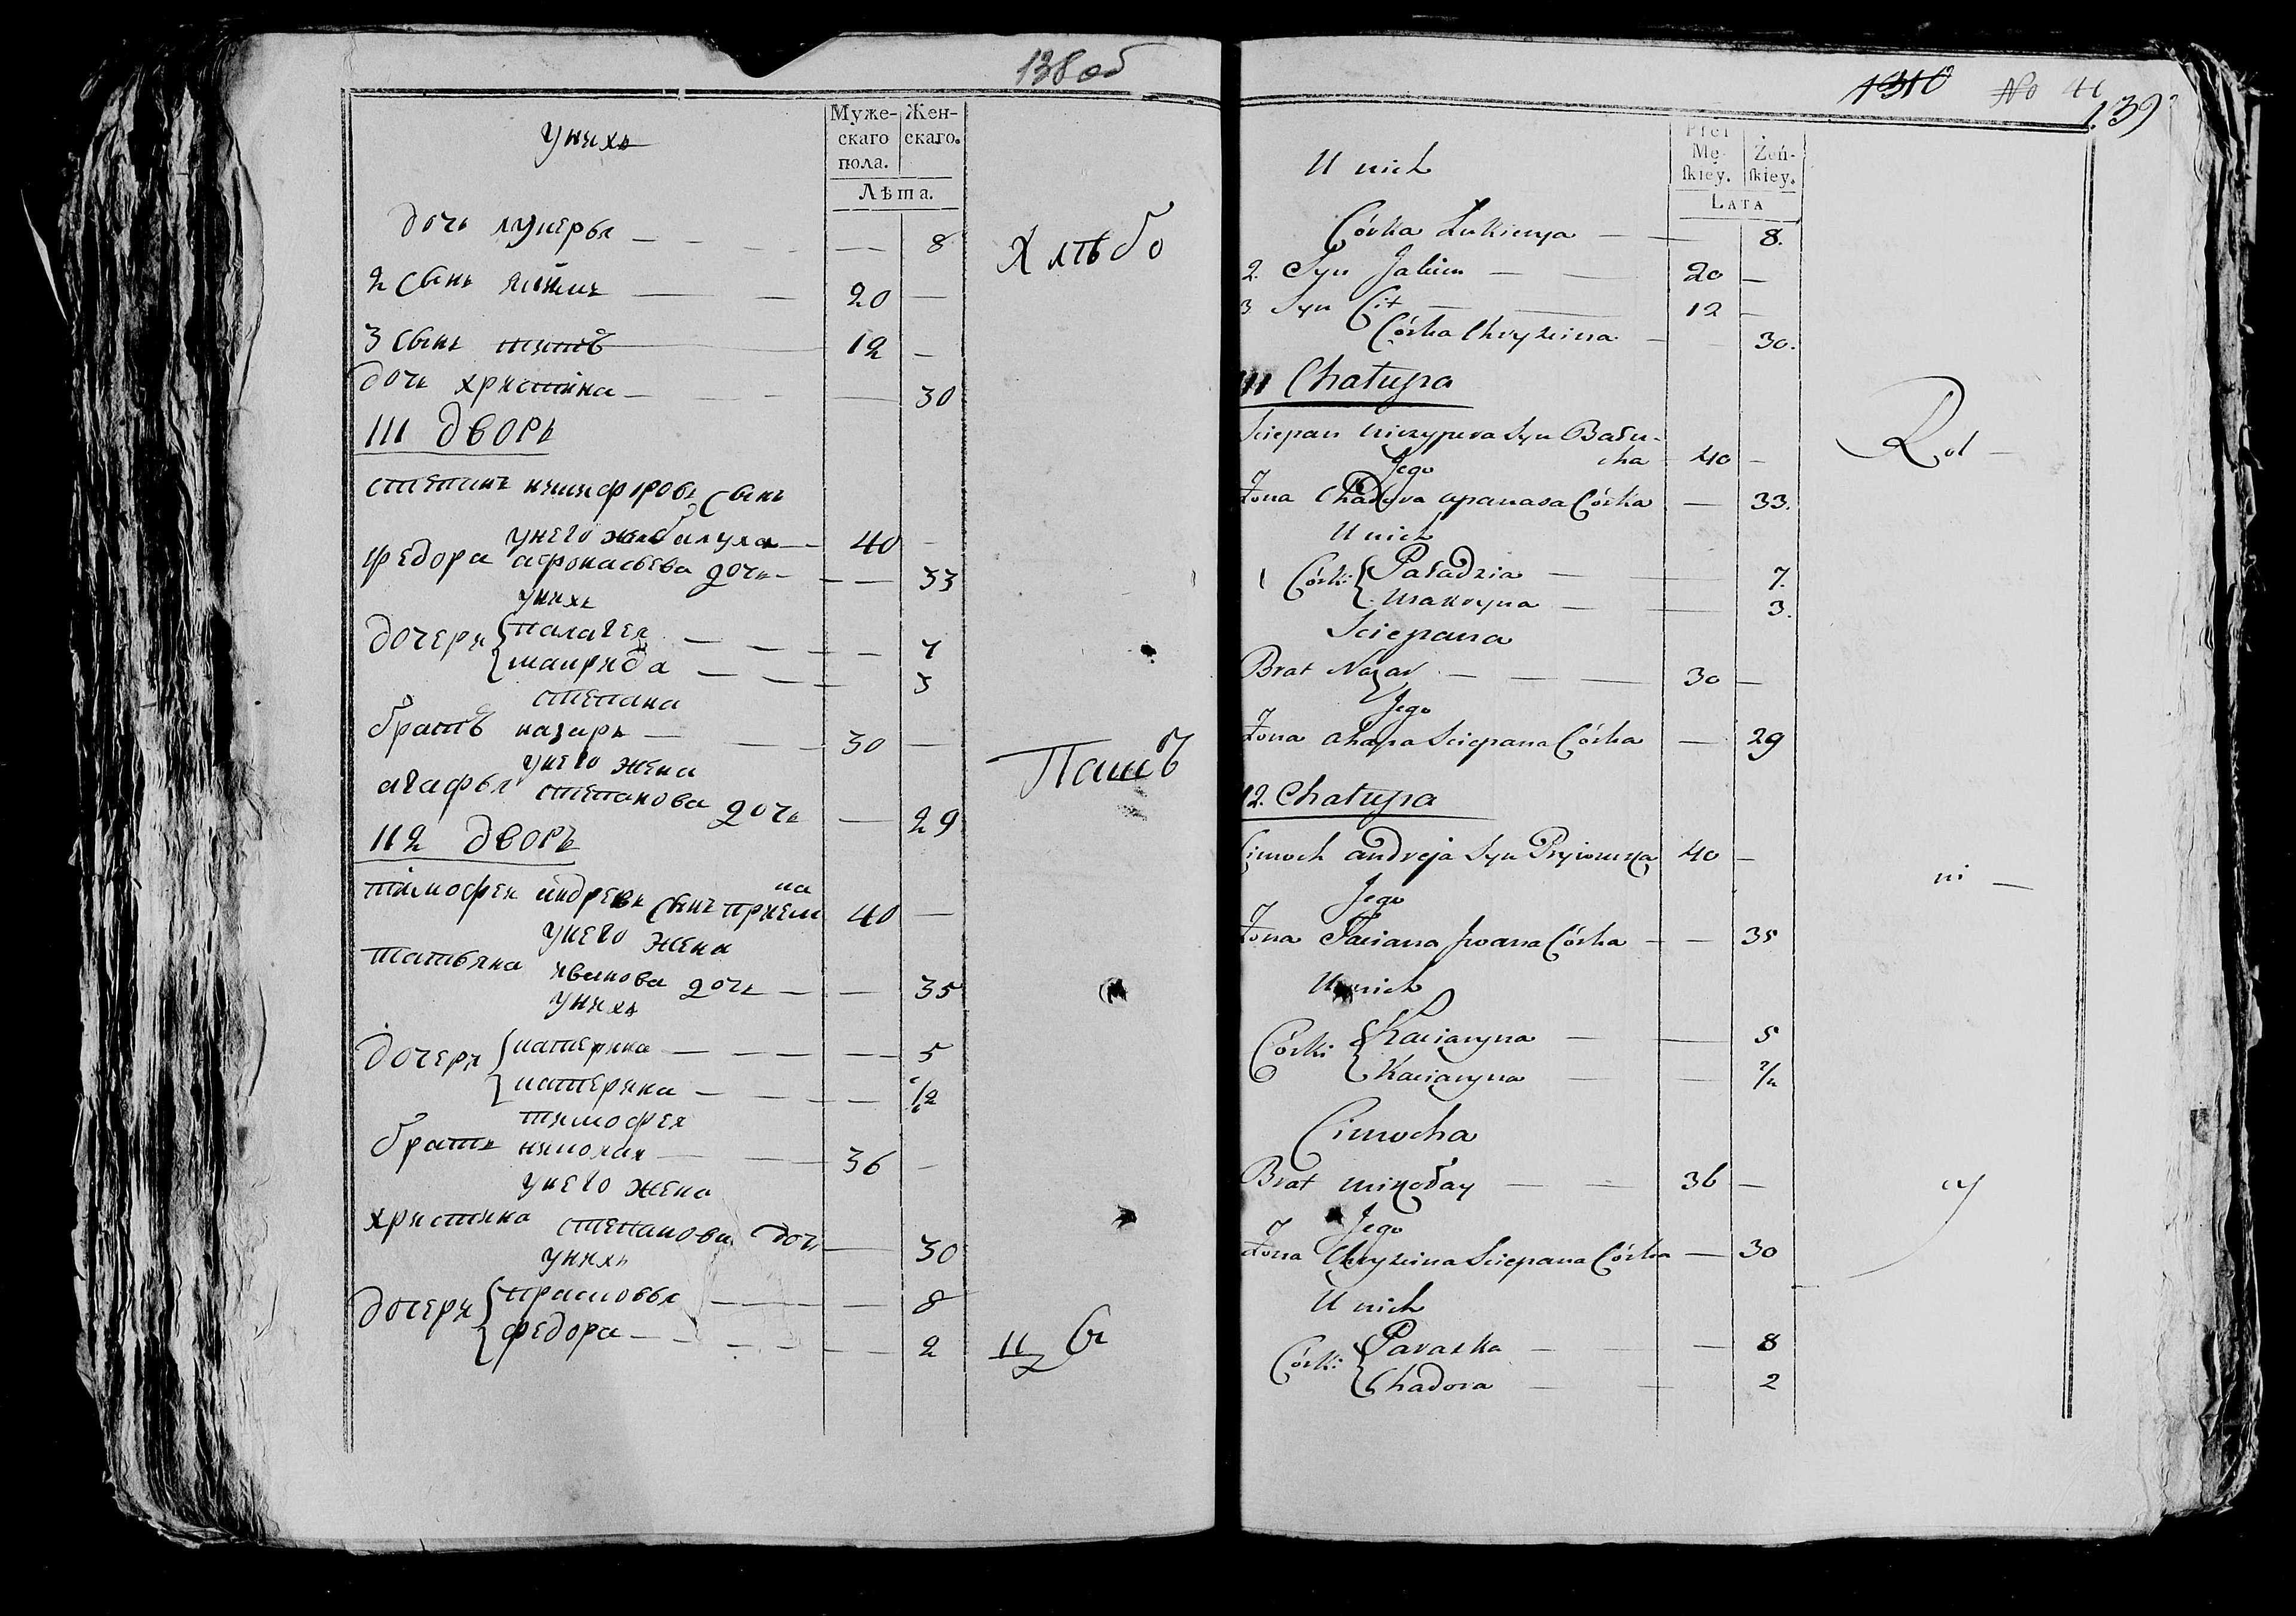 138 об
у нихъ
Муже-
скаго
пола.
Жен-
скаго.
Лѣта.
дочь лукерья — — — — 8
2 сынъ якимъ — — 20 —
3 сынъ титъ — 12 —
дочь христина — — — — 30
111 дворъ
степанъ никифоровъ сынъ
балуха — 40 —
у него жена
федора афонасьева дочь — — — 33
у нихъ
дочери палагея — — — — 7
маирида — — — — 3
степана
братъ назаръ — — — 30 —
у него жена
агафья степанова дочь — 29
112 дворъ
тимофеи андреевъ сынъ прием
на 40 —
у него жена
татьяна иванова дочь — — 35
у нихъ
дочери катерина — — — — 5
катерина — — — — 1/2
тимофея
братъ николаи — — 36 —
у него жена
христина степанова дочь — 30
у нихъ
дочери прасковья — — — 8
федора — — — — — 2
Хлѣбо
Пашъ
11/2
1310 No 41
139
Płci
Mę-
ſkiey.
Żeń-
ſkiey.
Lata
U nich
Córka Łukierya — — 8.
2. Syn Jakim — — 20 —
3 Syn Cit — — 12 —
Córka Chryscina — — 30.
111 Chałupa
Sciepan Niczypera Syn Bału-
cha 40 —
Jego
Żona Chadora apanasa Córka — 33.
U nich
Córki Paładzia — — 7.
Makryna — — 3.
Sciepana
Brat Nazar — — — 30 —
Jego
Żona ahapa Sciepana Córka — 29
12. Chałupa
Cimoch andreja Syn Pryiomka 40 —
Jego
Żona Taciana Jwana Córka — — 35
U nich
Córki Kaciaryna — — 5
Kaciaryna — — 1/2
Cimocha
Brat Mikołay — — 36 —
Jego
Żona Chryscina Sciepana Córka — 30
U nich
Córki Paraska — — 8
Chadora — — 2
Rol —
ni —
cy